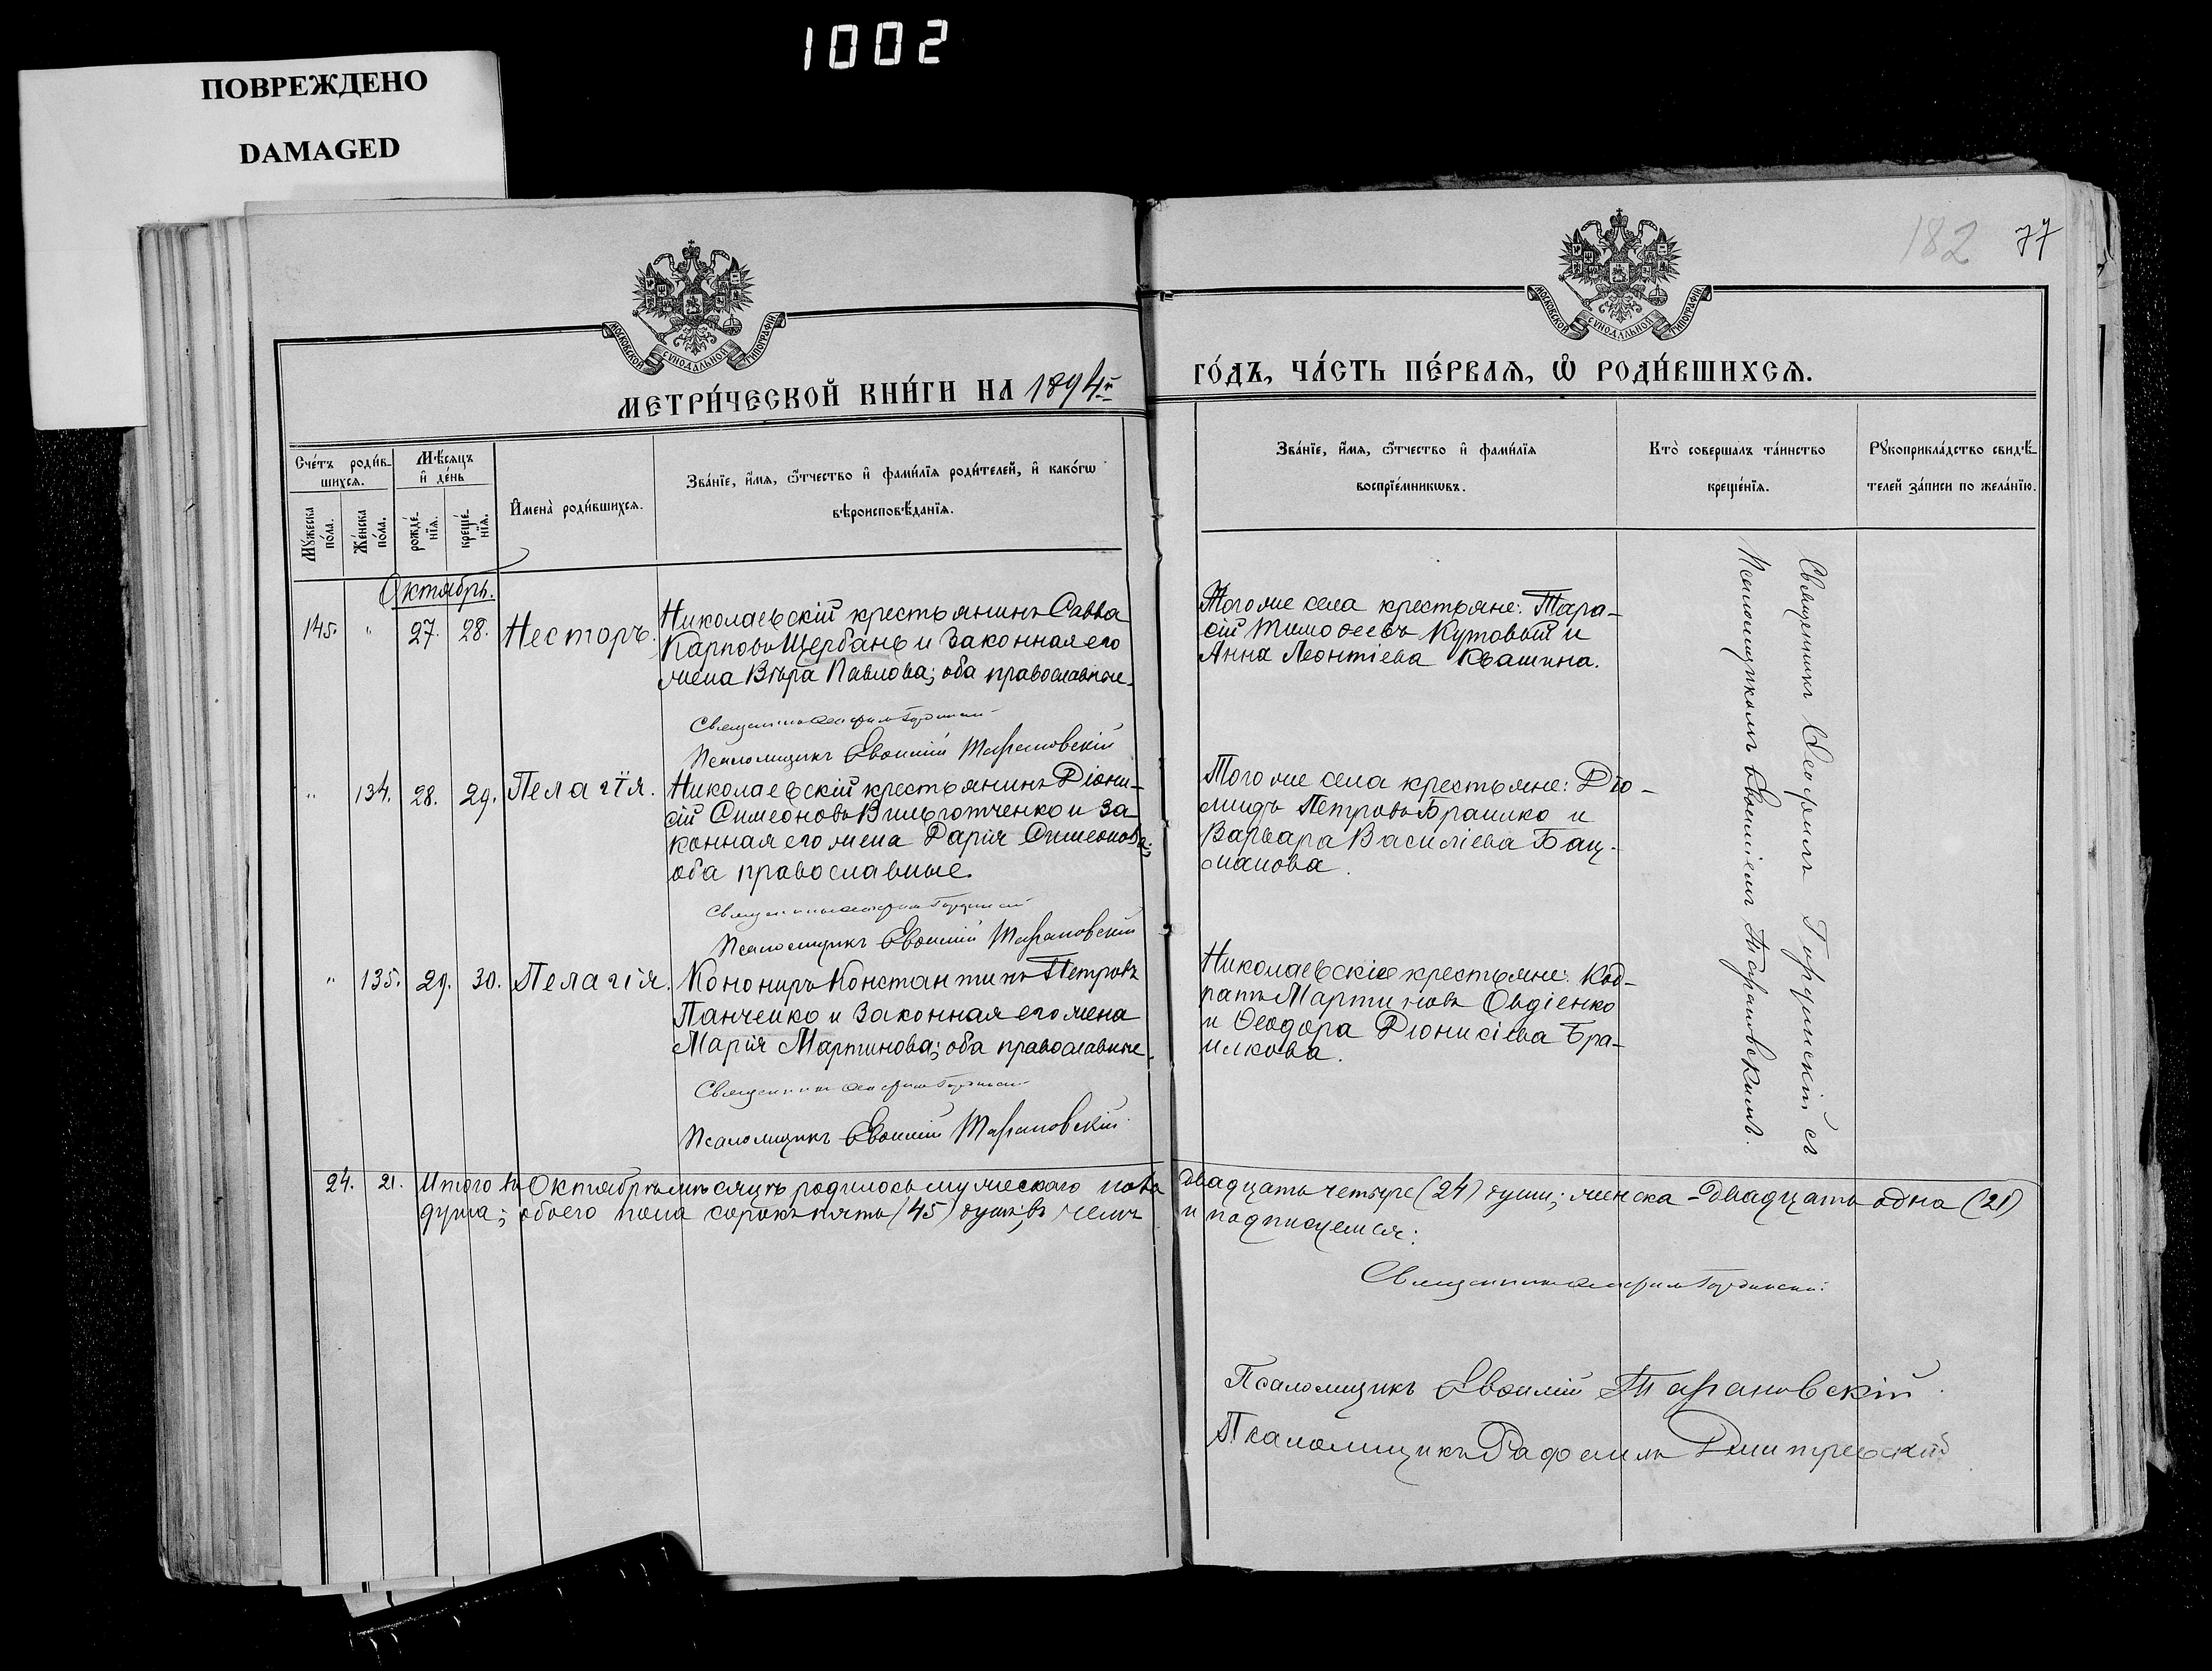 1002
ПОВРЕЖДЕНО
DAMAGED
182 77
МОСКОВСКОЙ СѴНОДАЛЬНОЙ ТИПОГРАФІИ
МОСКОВСКОЙ СѴНОДАЛЬНОЙ ТИПОГРАФІИ
МЕТРИ́ЧЕСКОЙ КНИ́ГИ НА 1894й
ГО́ДЪ, ЧА́СТЬ ПЕ́РВАЯ, Ѡ РОДИ́ВШИХСЯ.
Сче́тъ роди́в-
шихся.
Мꙋ́жеска по́ла.
Же́нска по́ла.
Мѣ́сяцъ
и҆ де́нь
рожде́-
нїя.
креще́-
нїя.
И҆мена̀ роди́вшихся.
Зва́нїе, и҆́мя, ѻ҆́тчество и҆ фами́лїя роди́телей, и҆ како́гѡ
вѣроисповѣ́данїя.
Зва́нїе, и҆́мя, ѻ҆́тчество и҆ фами́лїя
воспрїе́мникѡвъ.
Кто̀ соверша́лъ та́инство
креще́нїя.
Рꙋкоприкла́дство свидѣ́-
телей за́писи по жела́нїю.
Октябрь.
145. " 27. 28. Несторъ.
Николаевскій крестьянинъ Савва
Карповъ Щербань и законная его
жена Вѣра Павлова; оба православные.
Священникъ Гординскій
Псаломщикъ Евѳимій Тарановскій
Того же села крестьяне: Тара-
сій Тимоѳеевъ Кутовый и
Анна Леонтіева Квашина.
" 134. 28. 29. Пелагія.
Николаевскій крестьянинъ Діони-
сій Симеоновъ Вильготченко и за-
конная его жена Дарія Симеонова;
оба православные.
Священникъ Гординскій
Псаломщикъ Евѳимій Тарановскій
Того же села крестьяне: Діо-
мидъ Петровъ Браилко и
Варвара Василіева Бац-
манова.
" 135. 29. 30. Пелагія.
Конониръ Константинъ Петровъ
Панченко и законная его жена
Марія Мартинова; оба православные.
Священникъ Гординскій
Псаломщикъ Евѳимій Тарановскій
Николаевскіе крестьяне: Код-
ратъ Мартиновъ Овдіенко
и Ѳеодора Діонисіева Бра-
илкова.
Священникъ Гординскій съ
Псаломщикомъ Евѳиміемъ Тарановскимъ.
24. 21. Итого въ Октябрѣ мѣсяцѣ родилось мужескаго пола двадцать четыре (24) души; женска - двадцать одна (21)
душа; обоего пола сорокъ пять (45) душъ; въ чемъ и подписуемся:
Священникъ Гординскій
Псаломщикъ Евѳимій Тарановскій
Псаломщикъ Рафаилъ Дмитревскій